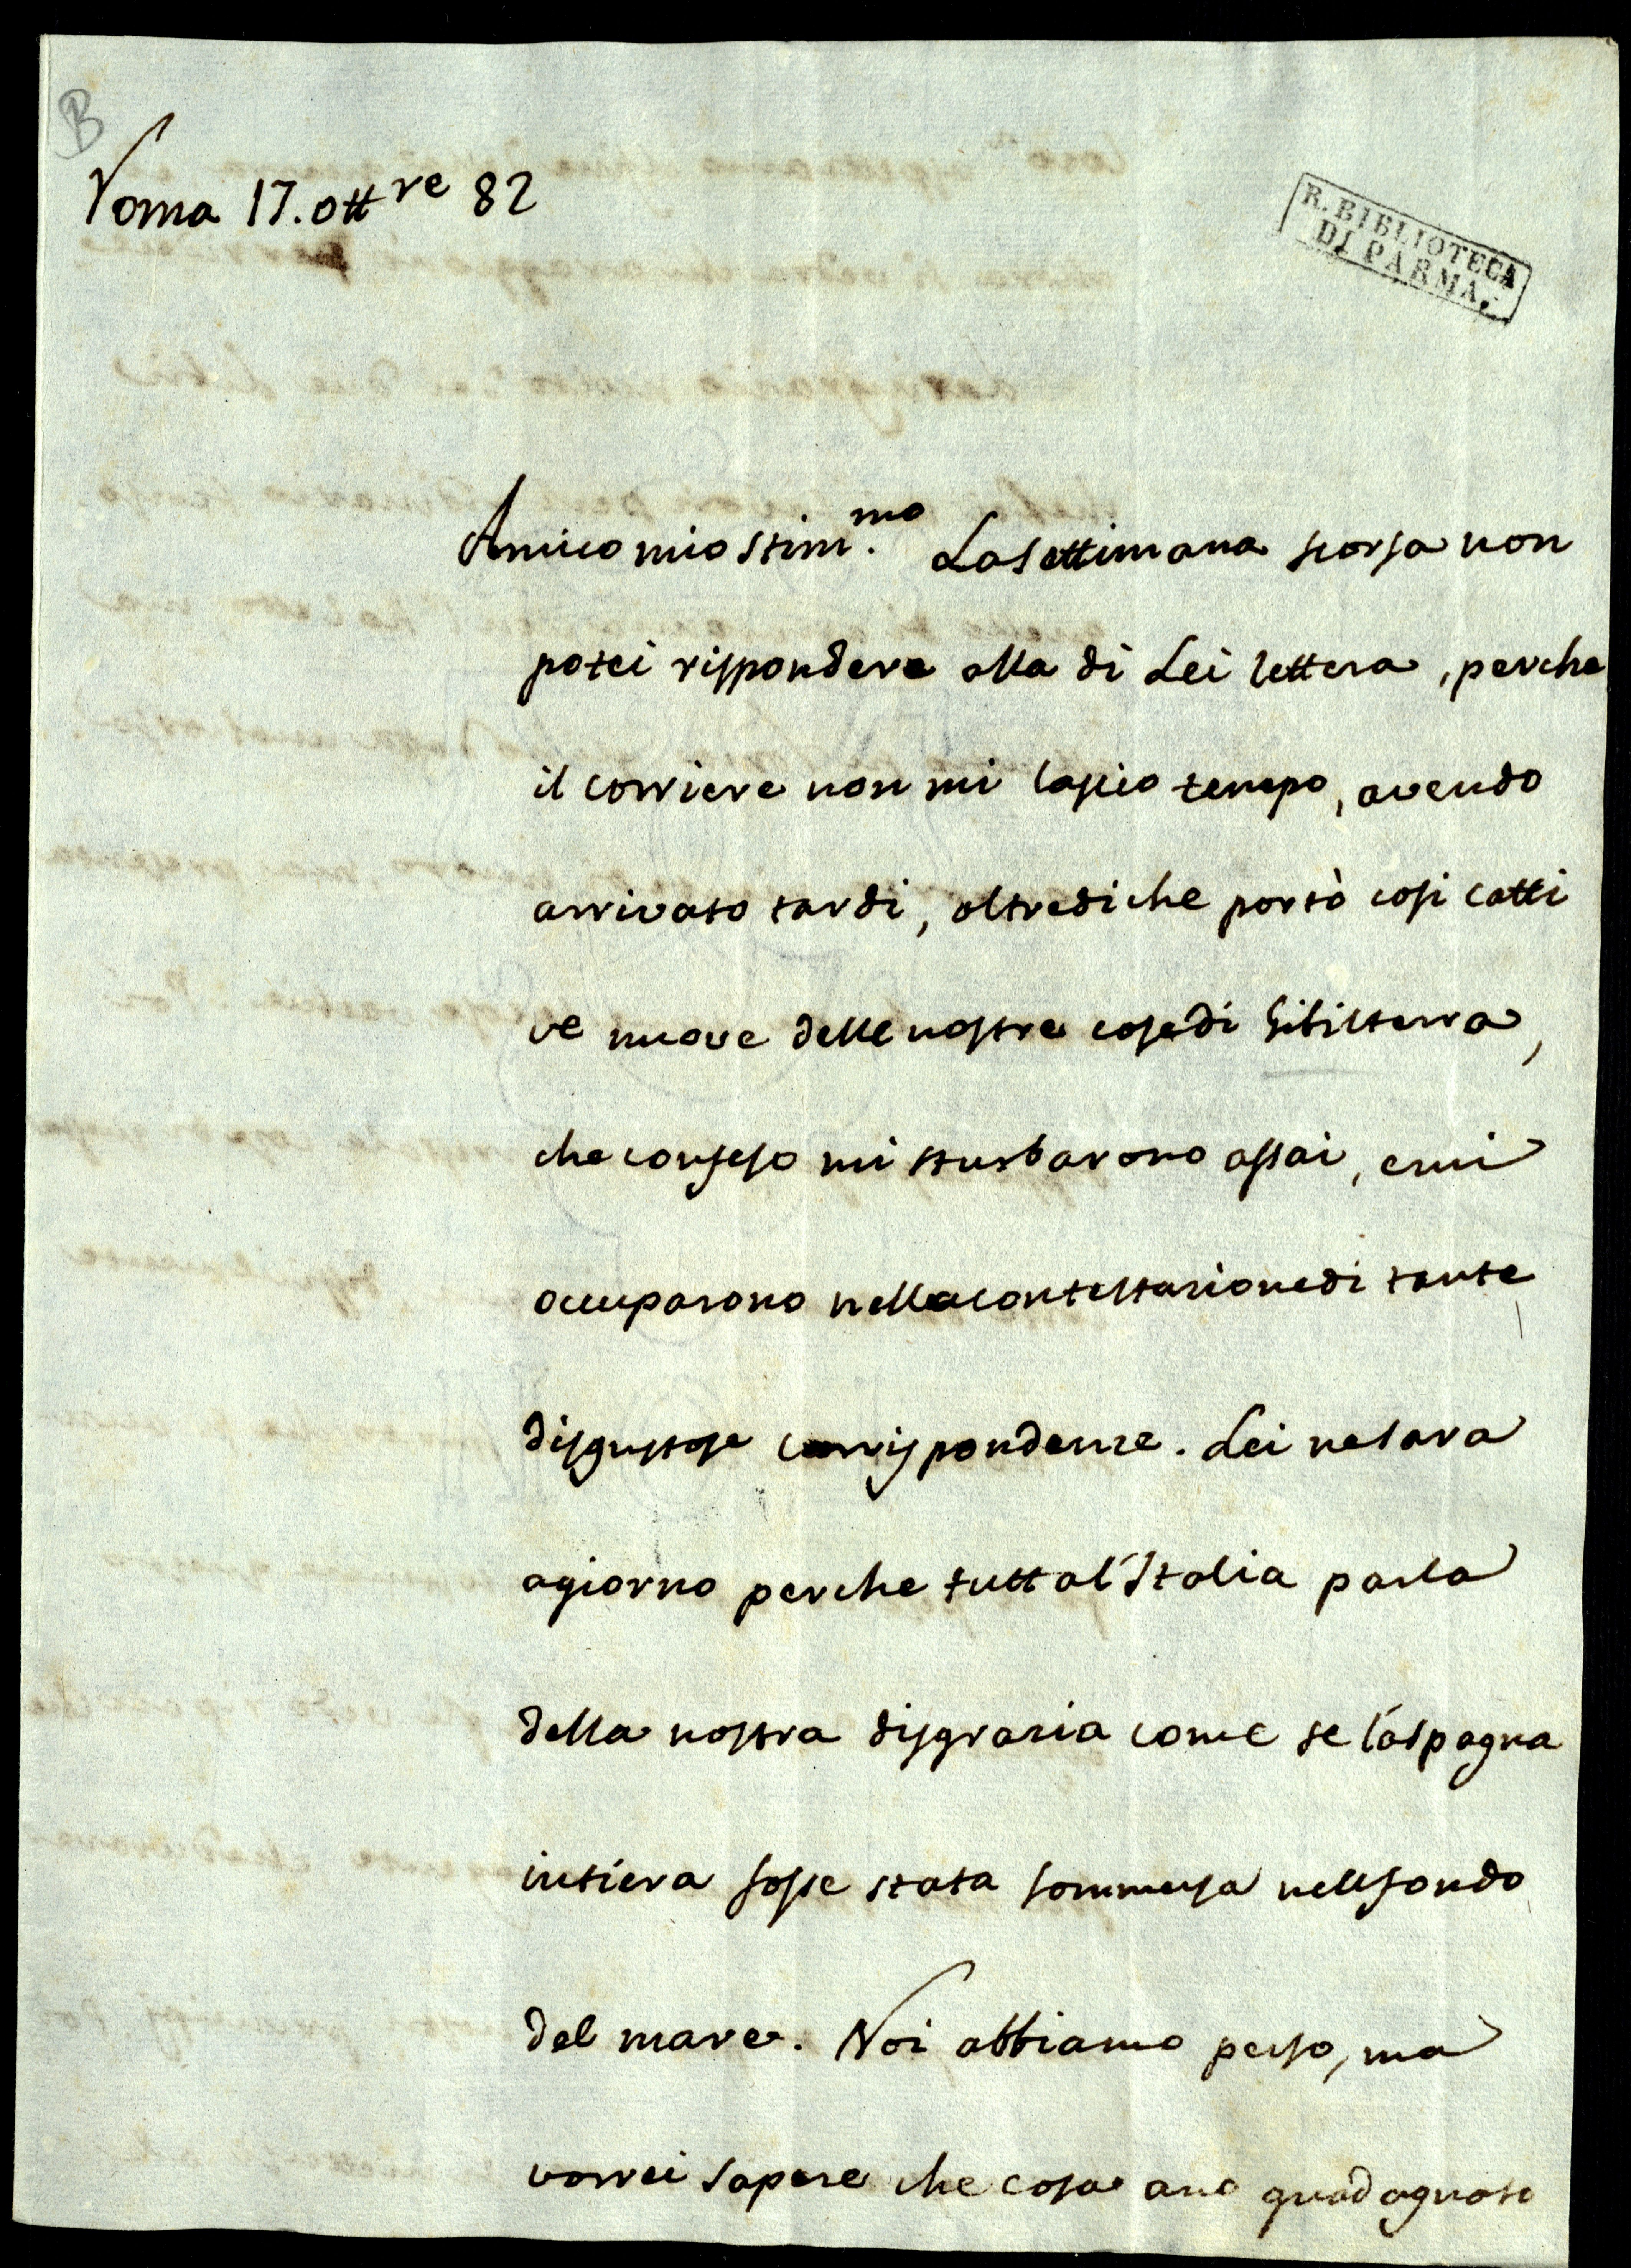 B
Roma 17. ottre 82
R. BIBLIOTECA
DI PARMA.
Amico mio stim.mo La settimana scorsa non
potei rispondere alla di Lei lettera, perche
il corriere non mi lascio tempo, avendo
arrivato tardi, oltre di che portò cosi catti
ve nuove delle nostre cose di Gibilterra,
che confeso mi sturbarono assai, e mi
occuparono nella contestazione di tante
disgustose corrispondenze. Lei ne sara
a giorno perche tutta l'Italia parla
della nostra disgrazia come se la Spagna
intiera fosse stata sommersa nell fondo
del mare. Noi abbiamo perso, ma
vorrei sapere che cosa ano guadagnato